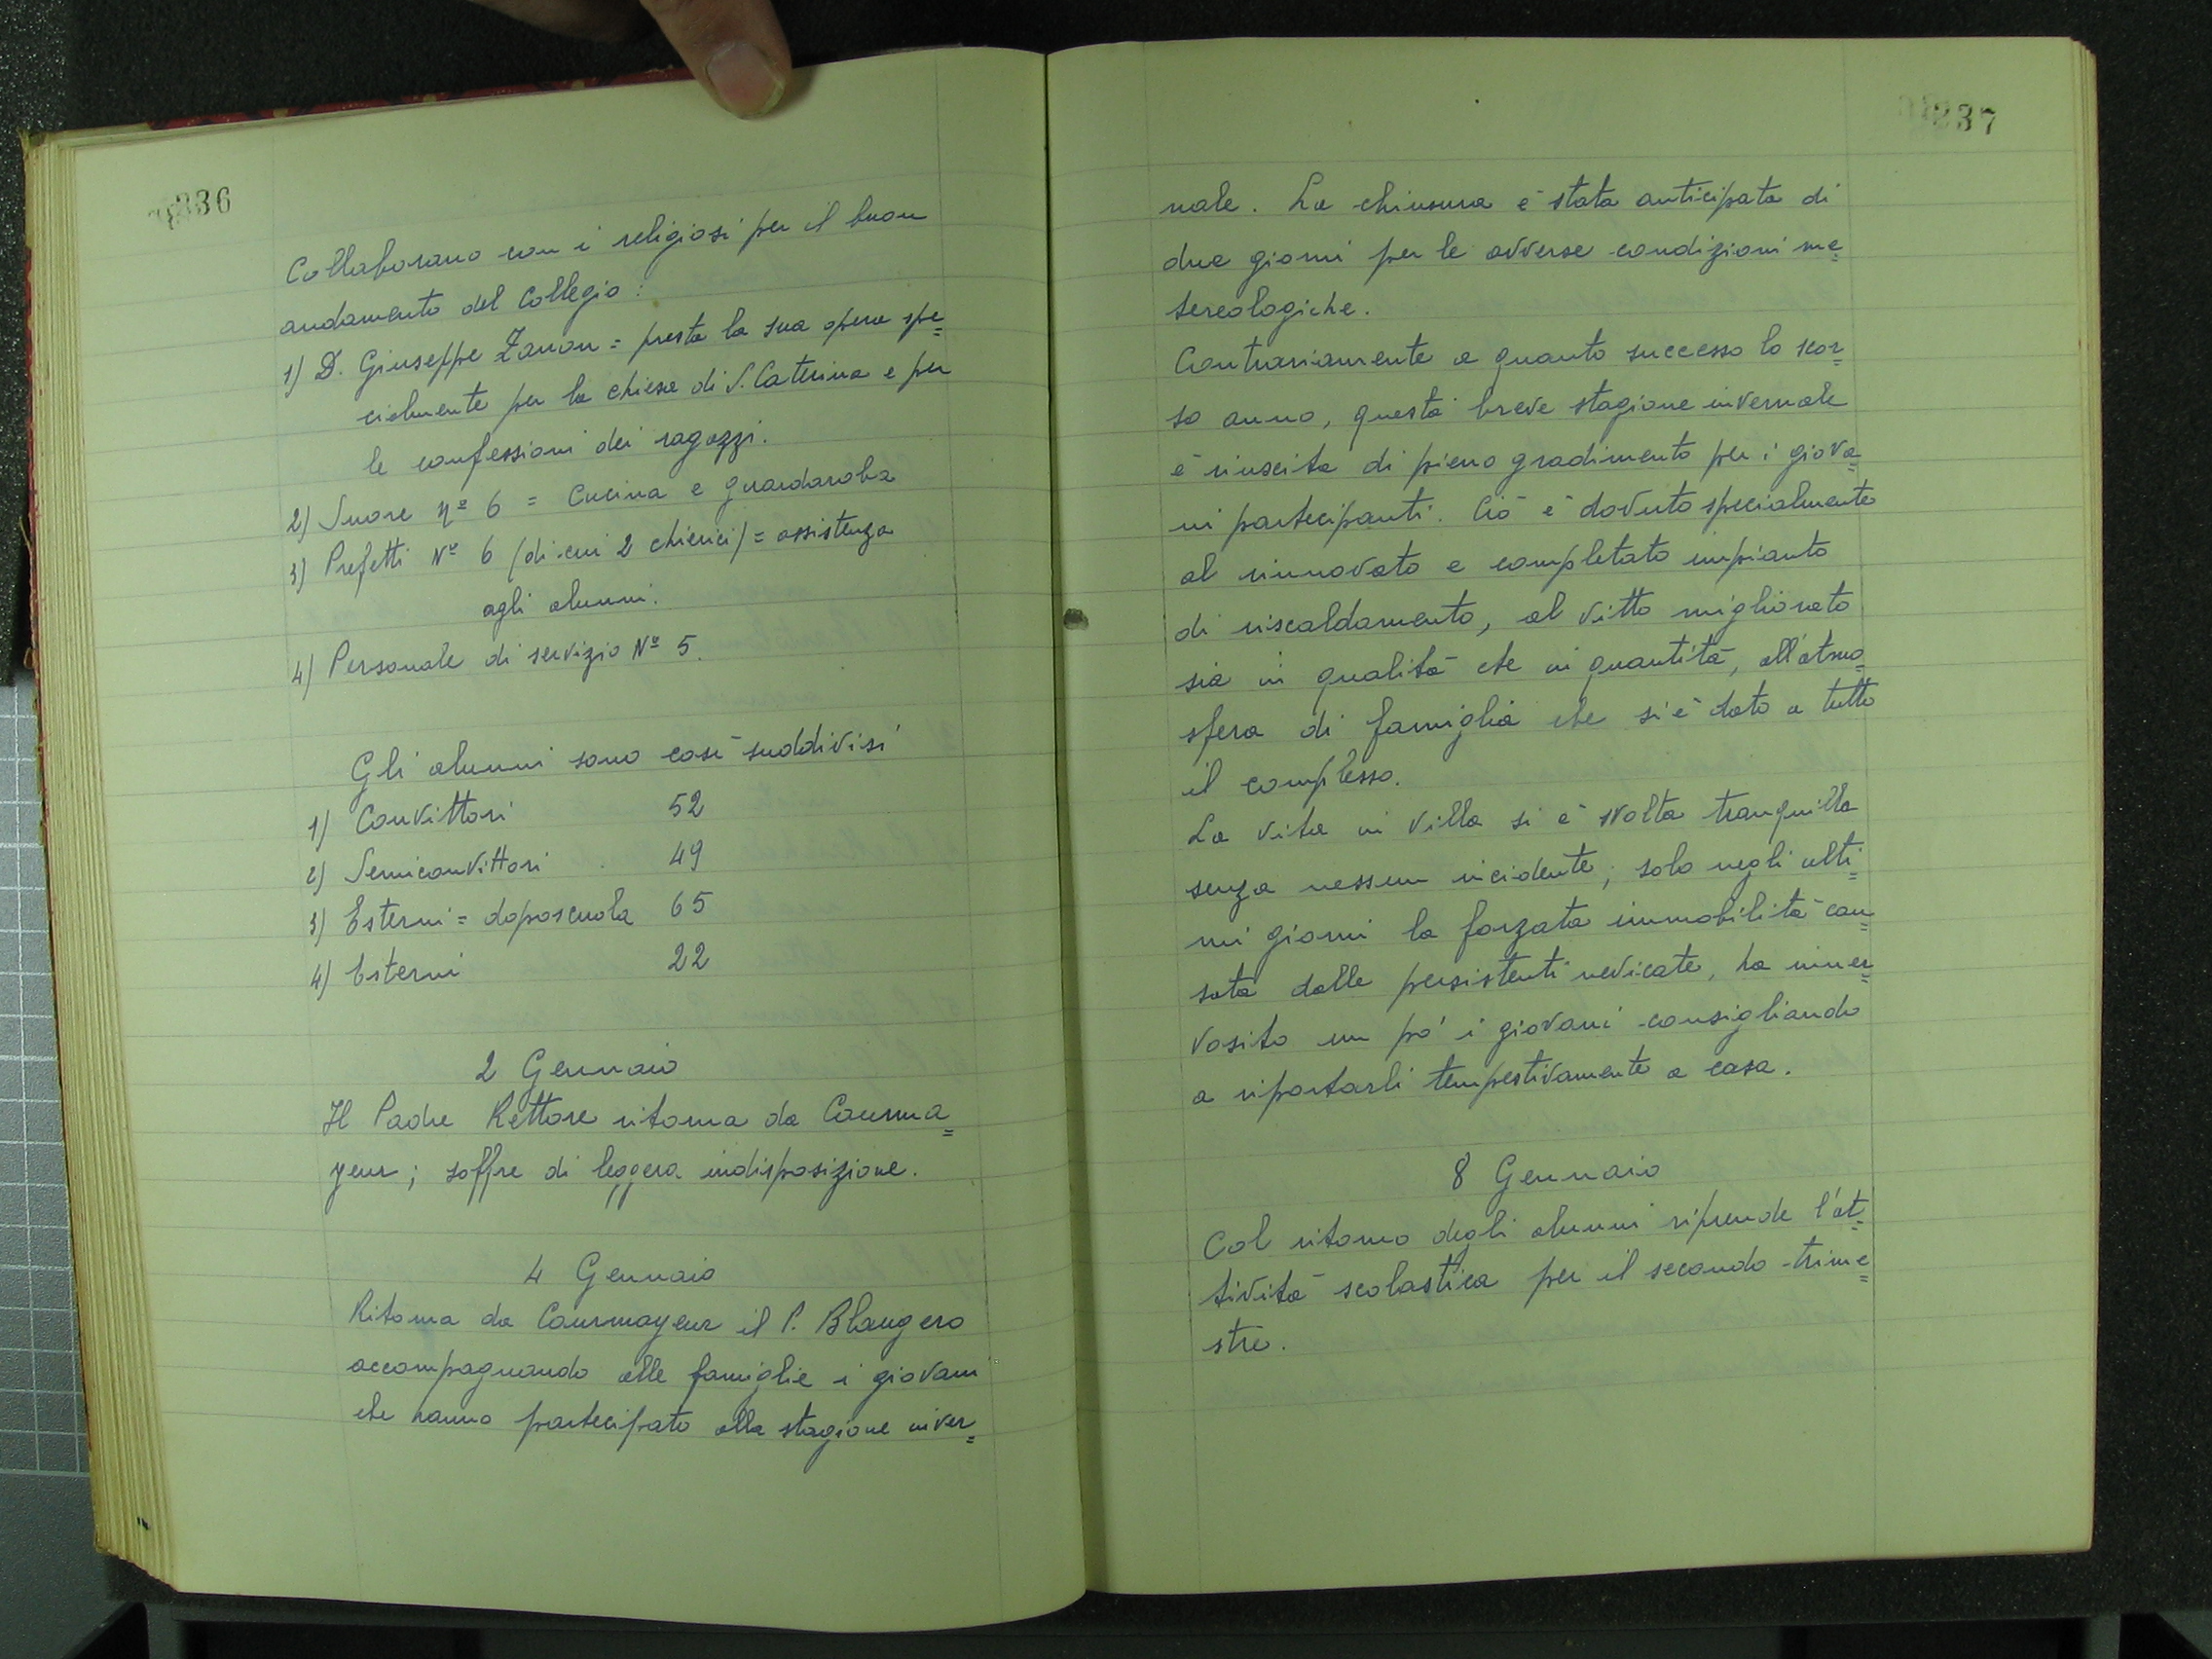 336
Collaborano con i religiosi per il buon
andamento del Collegio:
1) D. Giuseppe Zanon = presta la sua opera spe=
cialmente per la chiesa di S. Caterina e per
le confessioni dei ragazzi.
2) Suore nº 6 = Cucina e guardaroba
3) Prefetti Nº 6 (di cui 2 chierici) = assistenza
agli alunni.
4) Personale di servizio Nº 5.
Gli alunni sono così suddivisi
1) Convittori 52
2) Semiconvittori 49
3) Esterni = doposcuola 65
4) Esterni 22
2 Gennaio
Il Padre Rettore ritorna da Courma=
yeur; soffre di leggera indisposizione.
4 Gennaio
Ritorna da Courmayeur il P. Blangero
accompagnando alle famiglie i giovani
che hanno partecipato alla stagione inver=
337
nale. La chiusura è stata anticipata di
due giorni per le avverse condizioni me=
tereologiche.
Contrariamente a quanto successo lo scor=
so anno, questa breve stagione invernale
è riuscita di pieno gradimento per i giova=
ni partecipanti. Ciò è dovuto specialmente
al rinnovato e completato impianto
di riscaldamento, al vitto migliorato
sia in qualità che in quantità, all'atmo=
sfera di famiglia che si è dato a tutto
il complesso.
La vita in villa si è svolta tranquilla
senza nessun incidente; solo negli ulti=
mi giorni la forzata immobilità cau=
sata dalle persistenti nevicate, ha inner=
vosito un pò i giovani consigliando
a riportarli tempestivamente a casa.
8 Gennaio
Col ritorno degli alunni riprende l'at=
tività scolastica per il secondo trime=
stre.